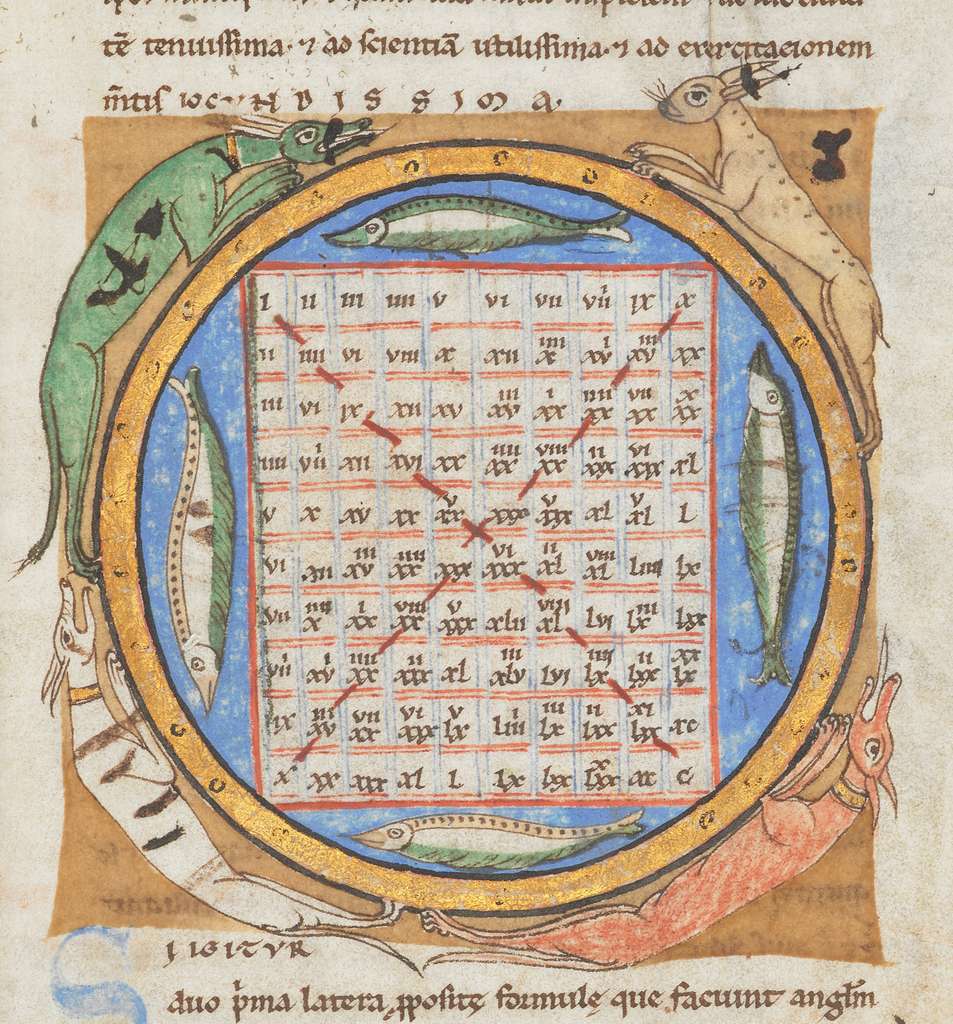 tē tenuissima· ⁊ ad scientiā utilissima· ⁊ ad exercitacionem
m̄tis iocVNDISSIMA.
I ii iii iiii v vi vii viii ix x
ii iiii vi viii x xii xiiii xvi xviii xx
iii vi ix xii xv xviii xxi xxiiii xxvii xxx
iiii viii xii xvi xx xxiiii xxviii xxxii xxxvi xl
v x xv xx xxv xxx xxxv xl xlv l
vi xii xviii xxiiii xxx xxxvi xlii xlviii liiii lx
vii xiiii xxi xxviii xxxv xlii xlviiii lvi lxiii lxx
viii xvi xxiiii xxxii xl xlviii lvi lxiiii lxxii lxxx
ix xviii xxvii xxxvi xlv liiii lxiii lxxii lxxxi xc
x xx xxx xl l lx lxx lxxx xc c
SIIGITVR
duo p̍ma latera ꝓpositę formulę que faciunt angl̄m